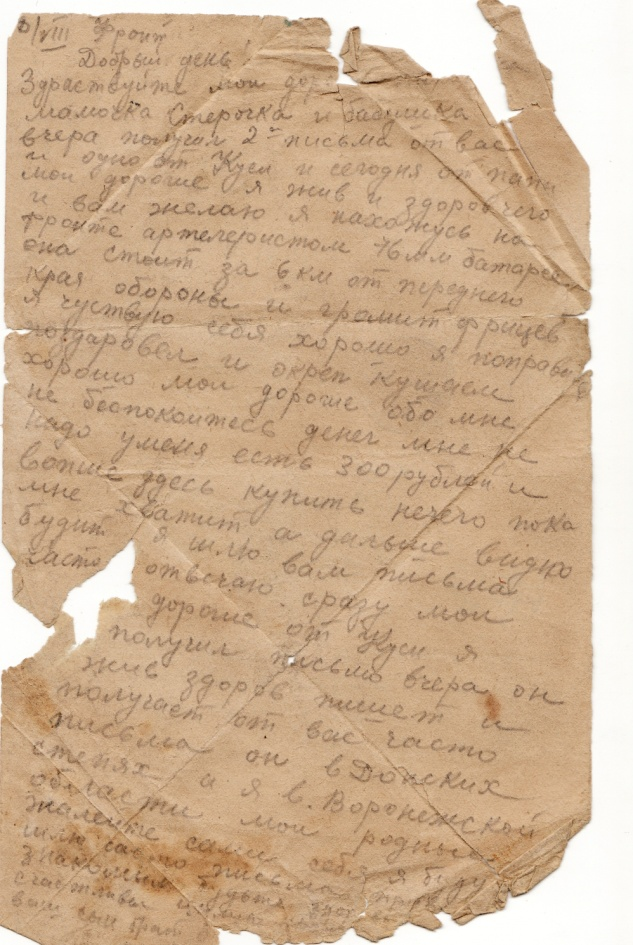 /VIII Фронт
Добрый день!
Здраствуйте мои дор
мамочка Стерочка и бабушка
вчера получил 2 письма от вас
и одно от Куси и сегодня от папи
мои дорогие я жив и здоров чего
и вам желаю я нахожусь на
фронте артелеристом 76 мм батареи
она стоит за 6 км от переднего
края обороны и громит фрицев
я чуствую себя хорошо я поправи
поздаровел и окреп кушаем
хорошо мои дорогие обо мне
не беспокоитесь денег мне не
надо уменя есть 300 рублей и
вопще здесь купить нечего пока
мне хватит а дальше видно
будит я шлю вам письма
часто отвечаю сразу мои
дорогие от Куси я
получил письмо вчера он
жив здоров пишет и
получает от вас часто
письма он в Донских
степях и я в. Воронежской
области мои родные
жалейте сами себя я буду
шлю часто письма
знакомым будьте
счастливы
ваш сын